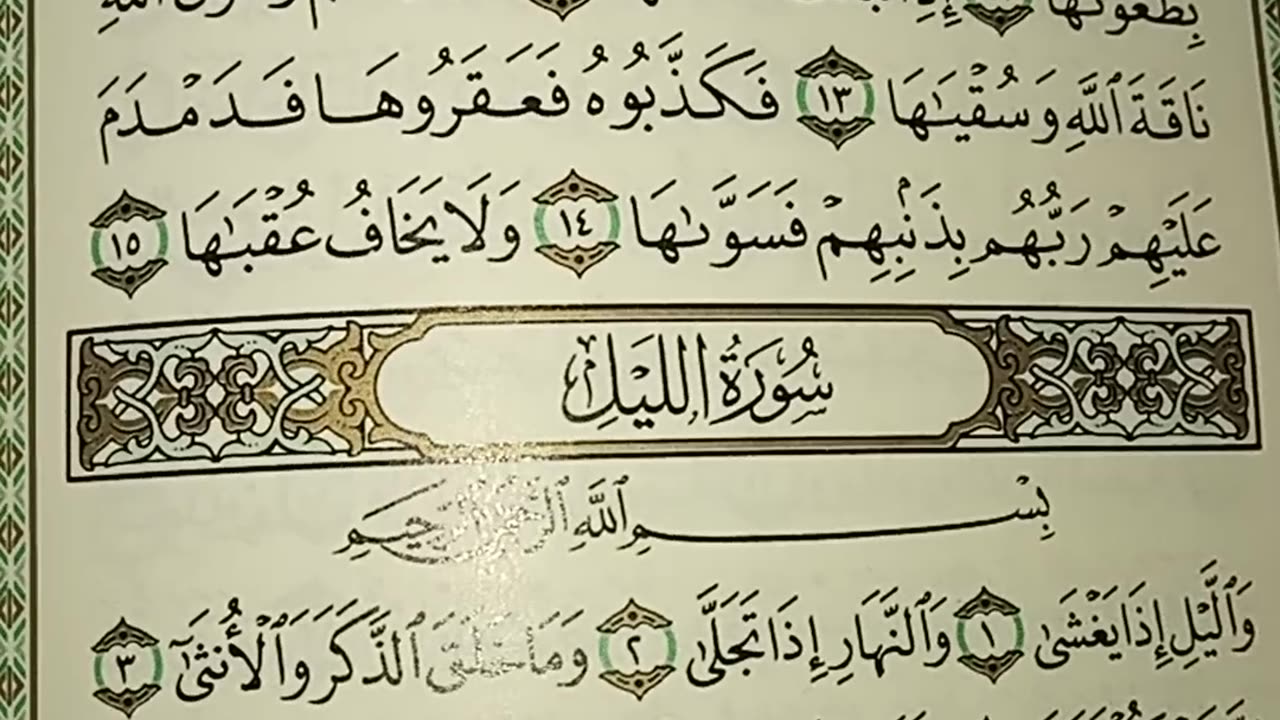 بِطَغْوَىٰهَا
نَاقَةَ ٱللَّهِ وَسُقْيَـٰهَا ١٣ فَكَذَّبُوهُ فَعَقَرُوهَا فَدَمْدَمَ
عَلَيْهِمْ رَبُّهُم بِذَنۢبِهِمْ فَسَوَّىٰهَا ١٤ وَلَا يَخَافُ عُقْبَـٰهَا ١٥
سُورَةُ اللَّيْلِ
بِسْمِ ٱللَّهِ ٱلرَّحْمَـٰنِ ٱلرَّحِيمِ
وَٱلَّيْلِ إِذَا يَغْشَىٰ ١ وَٱلنَّهَارِ إِذَا تَجَلَّىٰ ٢ وَمَا خَلَقَ ٱلذَّكَرَ وَٱلْأُنثَىٰٓ ٣